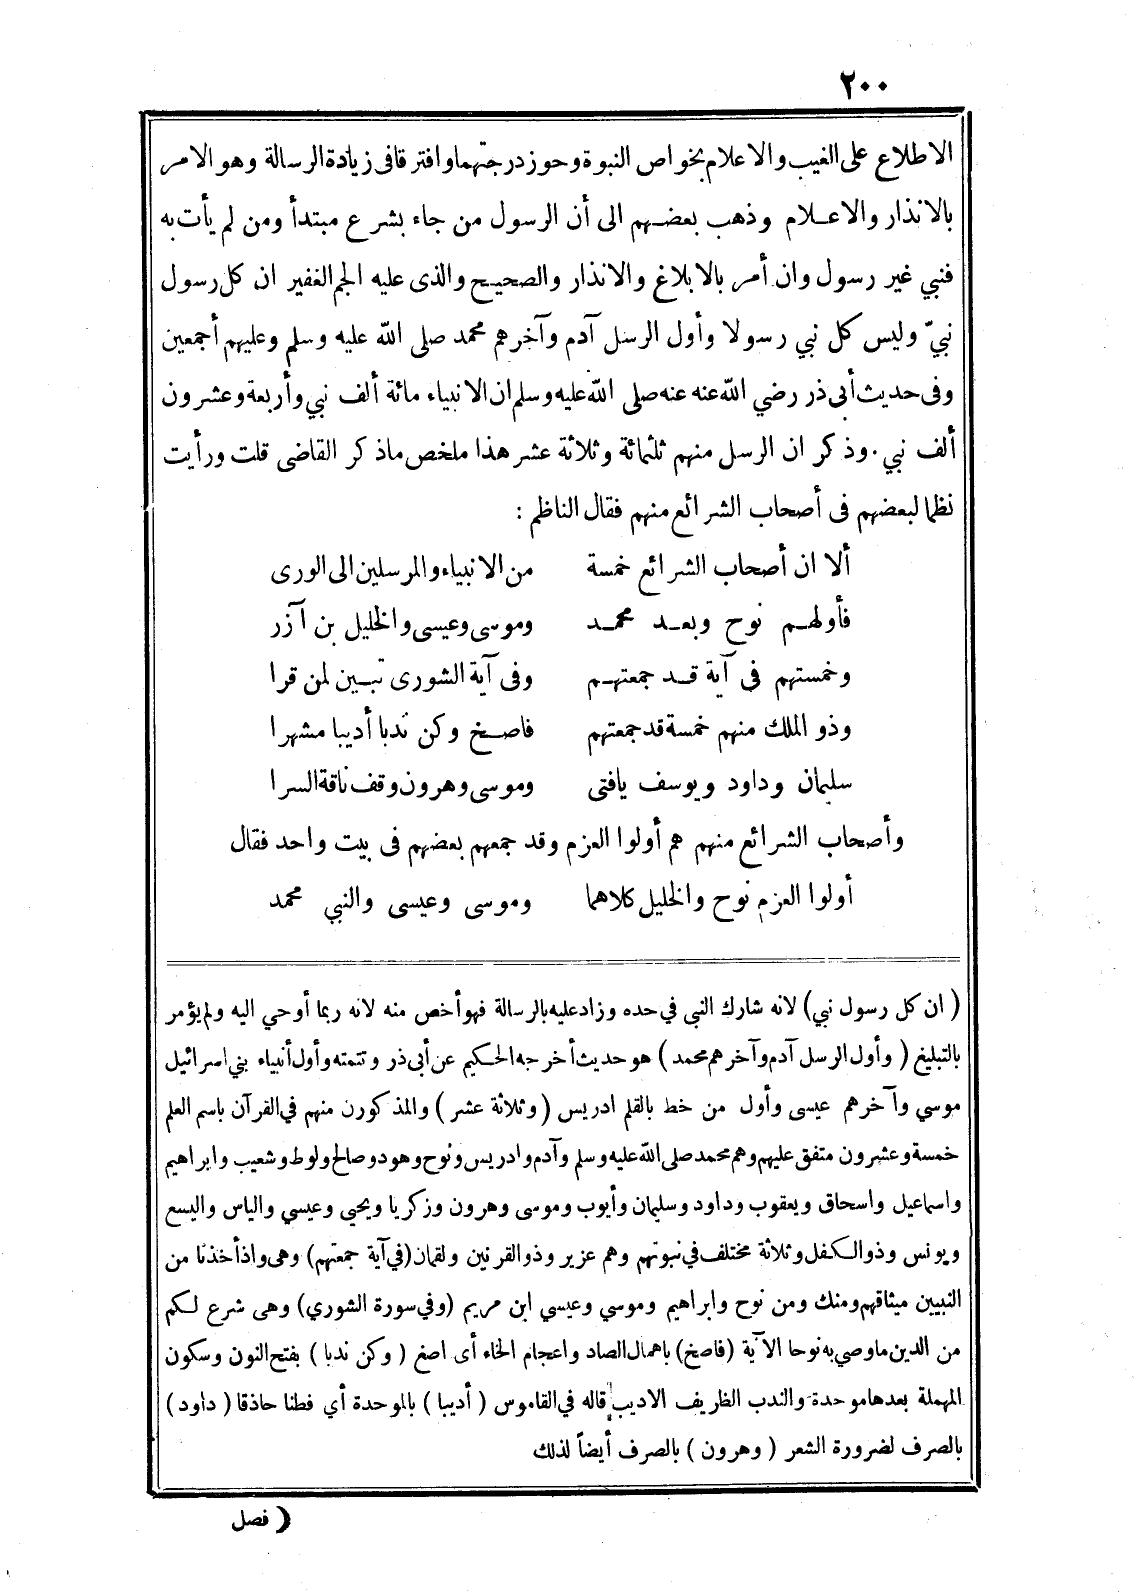 ٢٠٠
الاطلاع على الغيب والاعلام بخواص النبوة وحوز درجتهما وافترقا فى زيادة الرسالة وهو الامر
بالانذار والاعلام وذهب بعضهم الى أن الرسول من جاء بشرع مبتدأ ومن لم يأت به
فنبي غير رسول وان أمر بالابلاغ والانذار والصحيح والذى عليه الجم الغفير ان كل رسول
نبيّ وليس كل نبي رسولا وأول الرسل آدم وآخرهم محمد صلى الله عليه وسلم وعليهم أجمعين
وفى حديث أبى ذر رضي الله عنه عنه صلى الله عليه وسلم ان الانبياء مائة ألف نبي وأربعة وعشرون
ألف نبي . وذكر ان الرسل منهم ثلثمائة وثلاثة عشر هذا ملخص ماذكر القاضى قلت ورأيت
نظما لبعضهم فى أصحاب الشرائع منهم فقال الناظم :
ألا ان أصحاب الشرائع خمسة من الانبياء والمرسلين الى الورى
فأولهم نوح وبعد محمد وموسى وعيسى والخليل بن آزر
وخمستهم فى آية قد جمعتهم وفى آية الشورى تبين لمن قرا
وذو الملك منهم خمسة قد جمعتهم فاصخ وكن ندبا أديبا مشهرا
سليمان وداود ويوسف يافتى وموسى وهرون وقف ناقة السرا
وأصحاب الشرائع منهم هم أولوا العزم وقد جمعهم بعضهم فى بيت واحد فقال
أولوا العزم نوح والخليل كلاهما وموسى وعيسى والنبي محمد
( ان كل رسول نبي) لانه شارك النبي في حده وزاد عليه بالرسالة فهو أخص منه لانه ربما أوحي اليه ولم يؤمر
بالتبليغ ( وأول الرسل آدم وآخرهم محمد ) هو حديث أخرجه الحكيم عن أبى ذر وتتمته وأول أنبياء بني اسرائيل
موسي وآخرهم عيسى وأول من خط بالقلم ادريس ( وثلاثة عشر ) والمذكورن منهم في القرآن باسم العلم
خمسة وعشرون متفق عليهم وهم محمد صلى الله عليه وسلم وآدم وادريس ونوح وهود وصالح ولوط وشعيب وابراهيم
واسماعيل واسحاق ويعقوب وداود وسليمان وأيوب وموسى وهرون وزكريا ويحيى وعيسي والياس واليسع
ويونس وذو الكفل وثلاثة مختلف في نبوتهم وهم عزير وذو القرنين ولقمان (في آية جمعتهم) وهى واذ أخذنا من
النبيين ميثاقهم ومنك ومن نوح وابراهيم وموسي وعيسي ابن مريم (وفي سورة الشوري) وهى شرع لكم
من الدين ماوصي به نوحا الآية (فاصخ) باهمال الصاد واعجام الخاء أى اصغ ( وكن ندبا ) بفتح النون وسكون
المهملة بعدها موحدة والندب الظريف الاديب قاله في القاموس ( أديبا ) بالموحدة أي فطنا حاذقا ( داود )
بالصرف لضرورة الشعر ( وهرون ) بالصرف أيضاً لذلك
( فصل